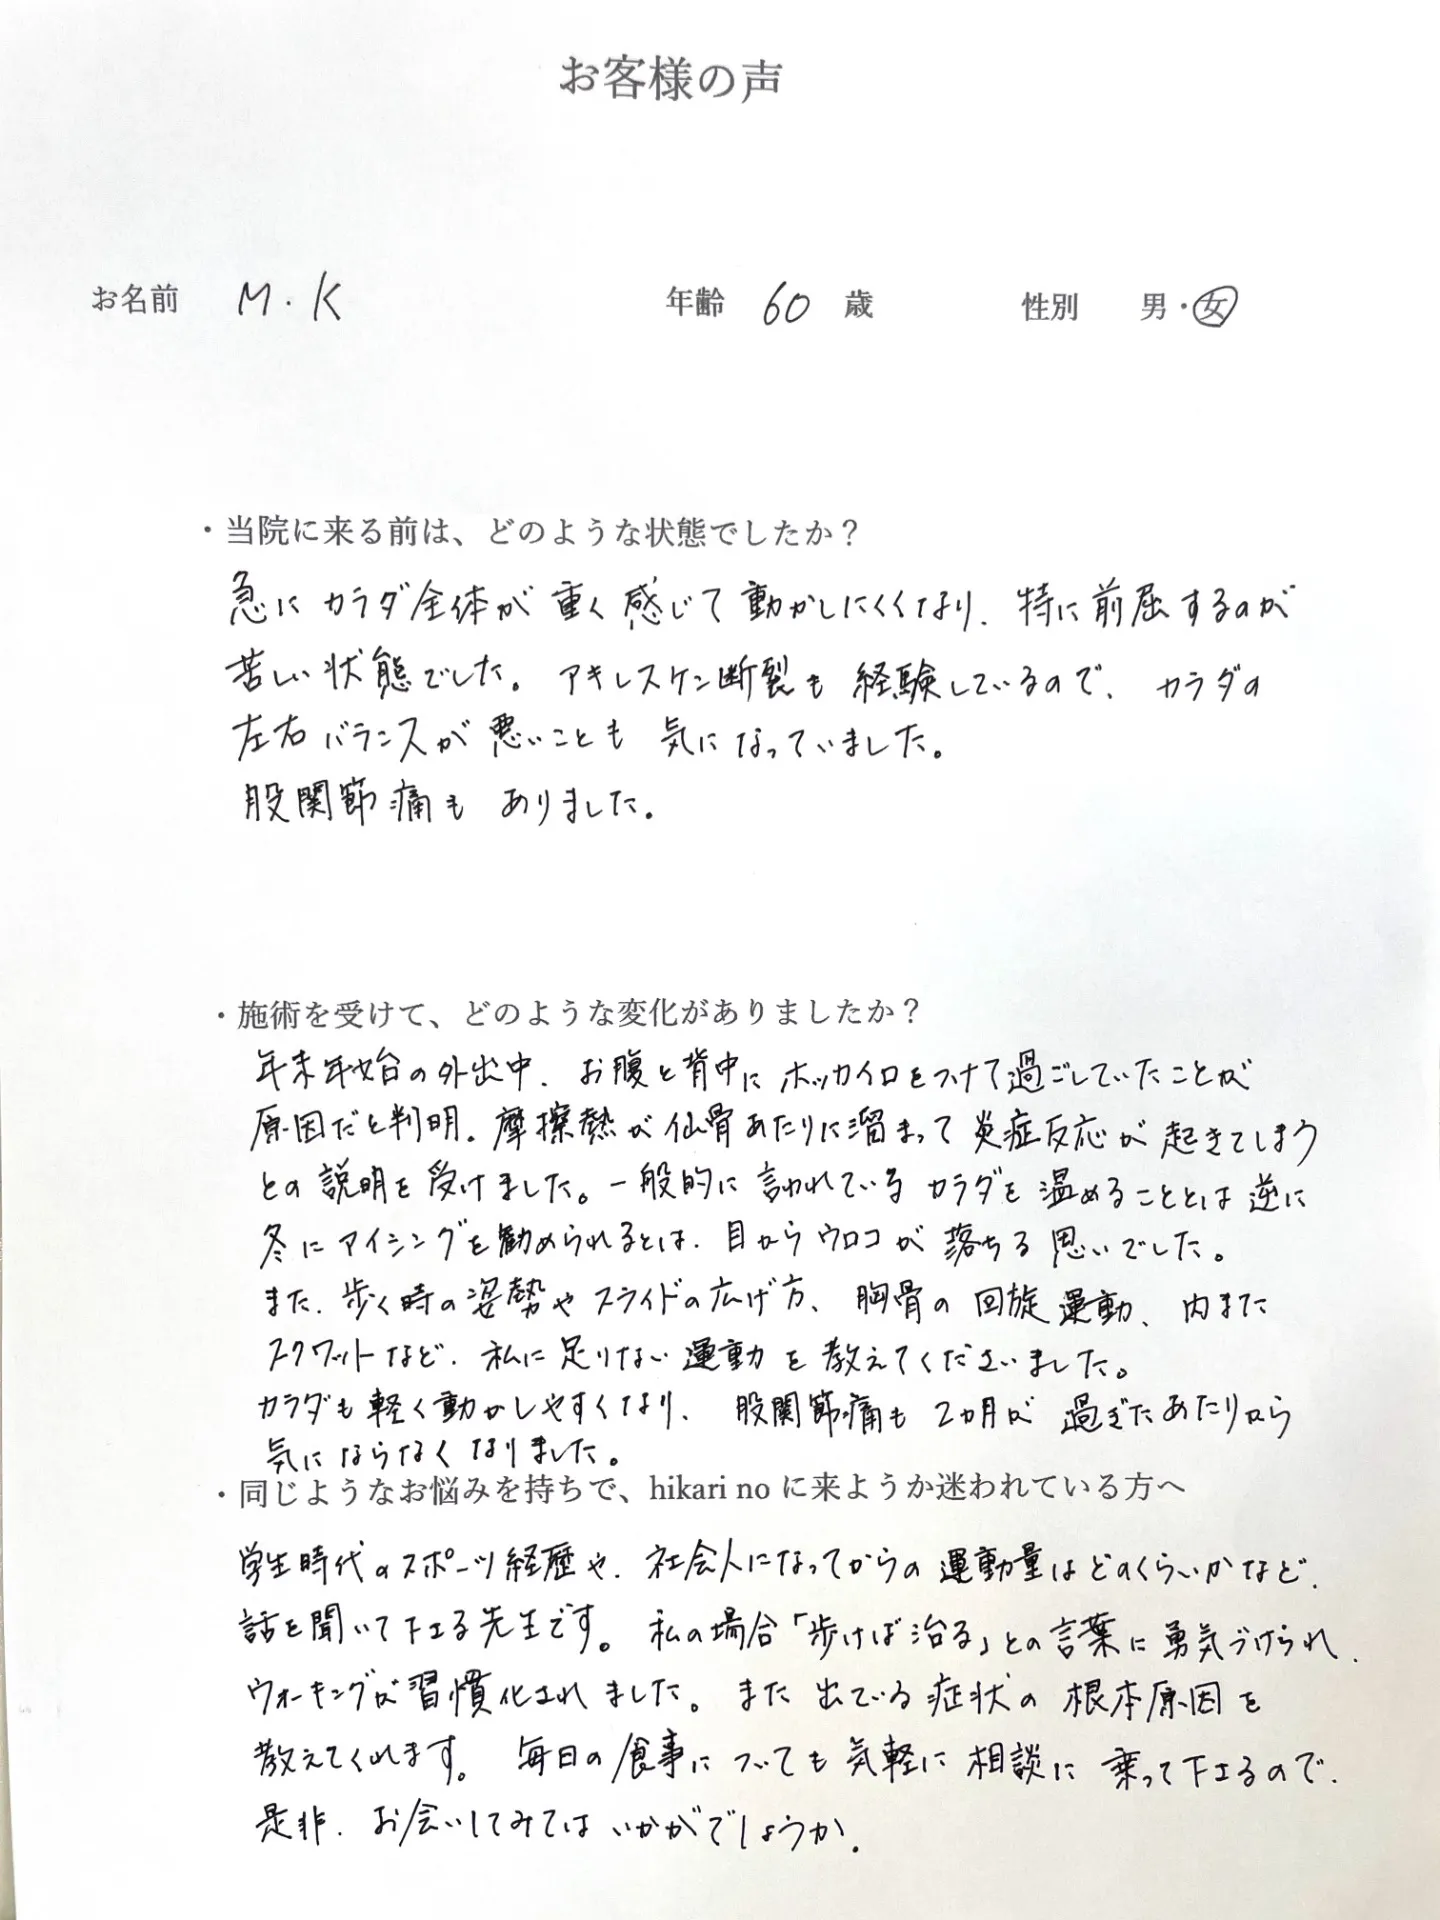 お客様の声
お名前 M.K 年齢 60 歳 性別 男・女
・当院に来る前は、どのような状態でしたか？
急にカラダ全体が重く感じて動かしにくくなり、特に前屈するのが
苦しい状態でした。アキレスケン断裂も経験しているので、カラダの
左右バランスが悪いことも気になっていました。
股関節痛もありました。
・施術を受けて、どのような変化がありましたか？
年末年始の外出中、お腹と背中にホッカイロをつけて過ごしていたことが
原因だと判明。摩擦熱が仙骨あたりに溜まって炎症反応が起きてしまう
との説明を受けました。一般的に言われているカラダを温めることとは逆に
冬にアイシングを勧められるとは、目からウロコが落ちる思いでした。
また、歩く時の姿勢やスライドの広げ方、胸骨の回旋運動、内また
スクワットなど、私に足りない運動を教えてくださいました。
カラダも軽く動かしやすくなり、股関節痛も2ヵ月が過ぎたあたりから
気にならなくなりました。
・同じようなお悩みを持ちで、hikari no に来ようか迷われている方へ
学生時代のスポーツ経歴や、社会人になってからの運動量はどのくらいかなど、
話を聞いて下さる先生です。私の場合「歩けば治る」との言葉に勇気づけられ、
ウォーキングが習慣化されました。また出ている症状の根本原因を
教えてくれます。毎日の食事についても気軽に相談に乗って下さるので、
是非、お会いしてみてはいかがでしょうか。